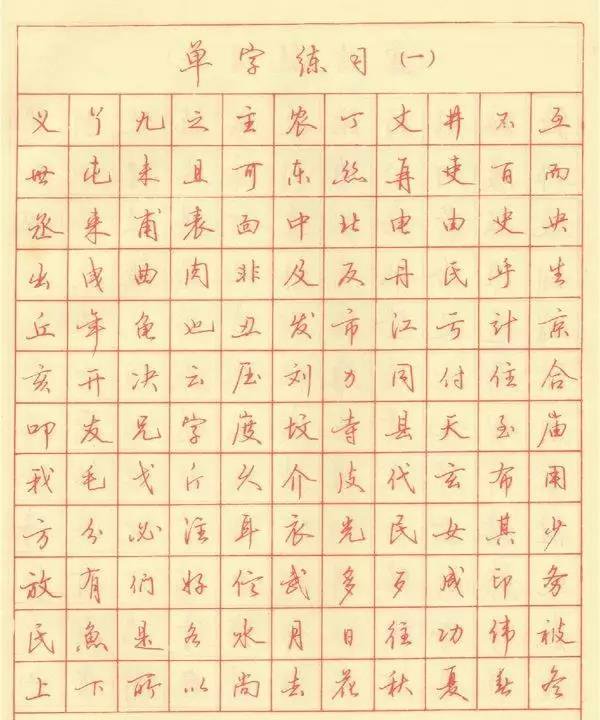 单字练习(一)
义丫九之主农丁丈井不互
世屯未且可东丝再吏百而
丞来甫表面中北电由史央
出曳曲肉非及反丹民乎生
丘年龟也丑发市江亏计京
亥开决云压刘力同付住合
叩友兄字度坟寺县天至庙
我毛戈斤头介皮代玄布用
方分必注耳衣光民女其少
放有们好信武多歹成印务
民鱼是各水月日往功伟被
上下所以尚去花秋夏冬